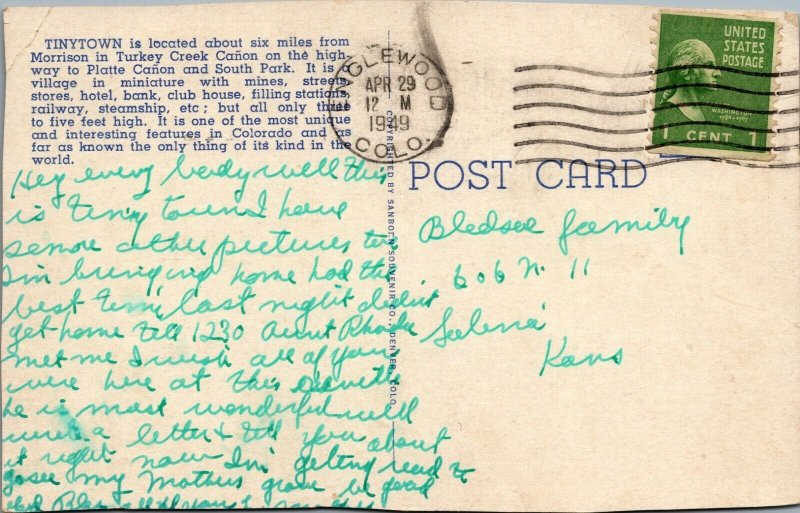 TINYTOWN is located about six miles from
Morrison in Turkey Creek Cañon on the high-
way to Platte Cañon and South Park. It is a
village in miniature with mines, streets,
stores, hotel, bank, club house, filling stations,
railway, steamship, etc; but all only three
to five feet high. It is one of the most unique
and interesting features in Colorado and as
far as known the only thing of its kind in the
world.
Hey every body well this
is tiny town I have
some other pictures too
Im bringing home had the
best time last night didint
get home till 1230 Aunt Rhoda
met me I wish all of you
were here at this
he is most wonderful will
write a letter & tell you about
it right now Im getting ready to
go see my Mothers grave be good
all
ENGLEWOOD
APR 29
12 M
1949
COLO.
UNITED
STATES
POSTAGE
WASHINGTON
1789-1797
1 CENT 1
POST CARD
COPYRIGHTED BY SANBORN SOUVENIR CO., DENVER, COLO.
Bledsoe family
606 N. 11
Salina
Kans